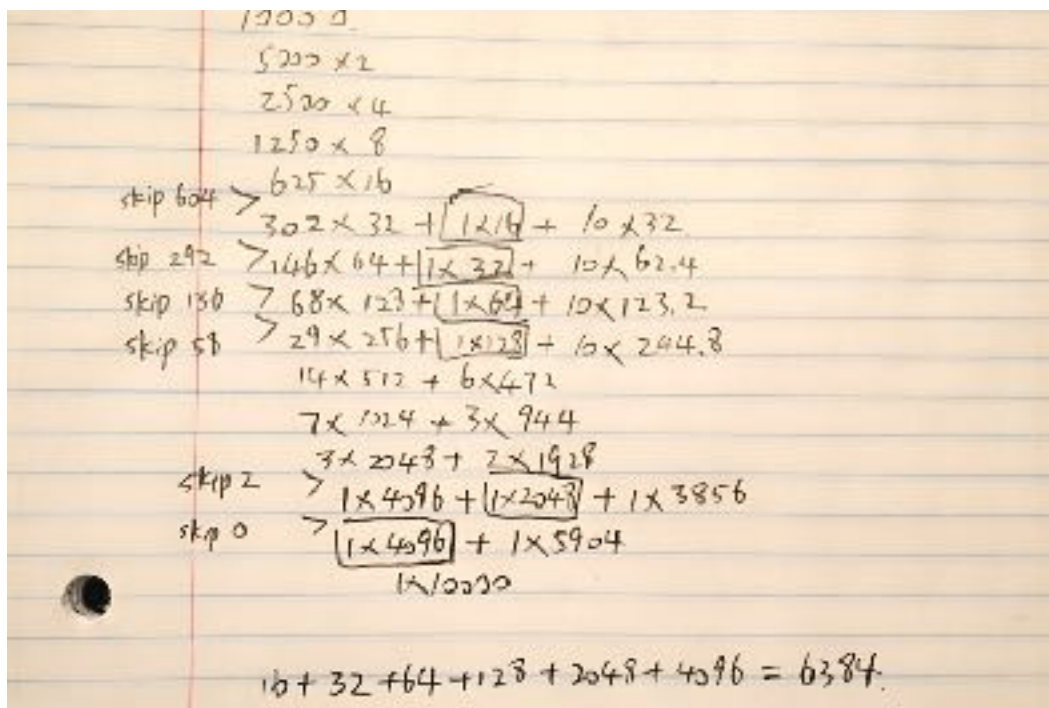 10000
5000 x 2
2500 x 4
1250 x 8
625 x 16
skip 604 > 302 x 32 + 1x16 + 10 x 32
skip 292 > 146 x 64 + 1 x 32 + 10 x 62.4
skip 136 > 68 x 128 + 1 x 64 + 10 x 123.2
skip 58 > 29 x 256 + 1x128 + 10 x 244.8
14 x 512 + 6 x 472
7 x 1024 + 3 x 944
3 x 2048 + 2 x 1928
skip 2 > 1 x 4096 + 1x2048 + 1 x 3856
skip 0 > 1 x 4096 + 1 x 5904
1 x 10000
16 + 32 + 64 + 128 + 2048 + 4096 = 6384.